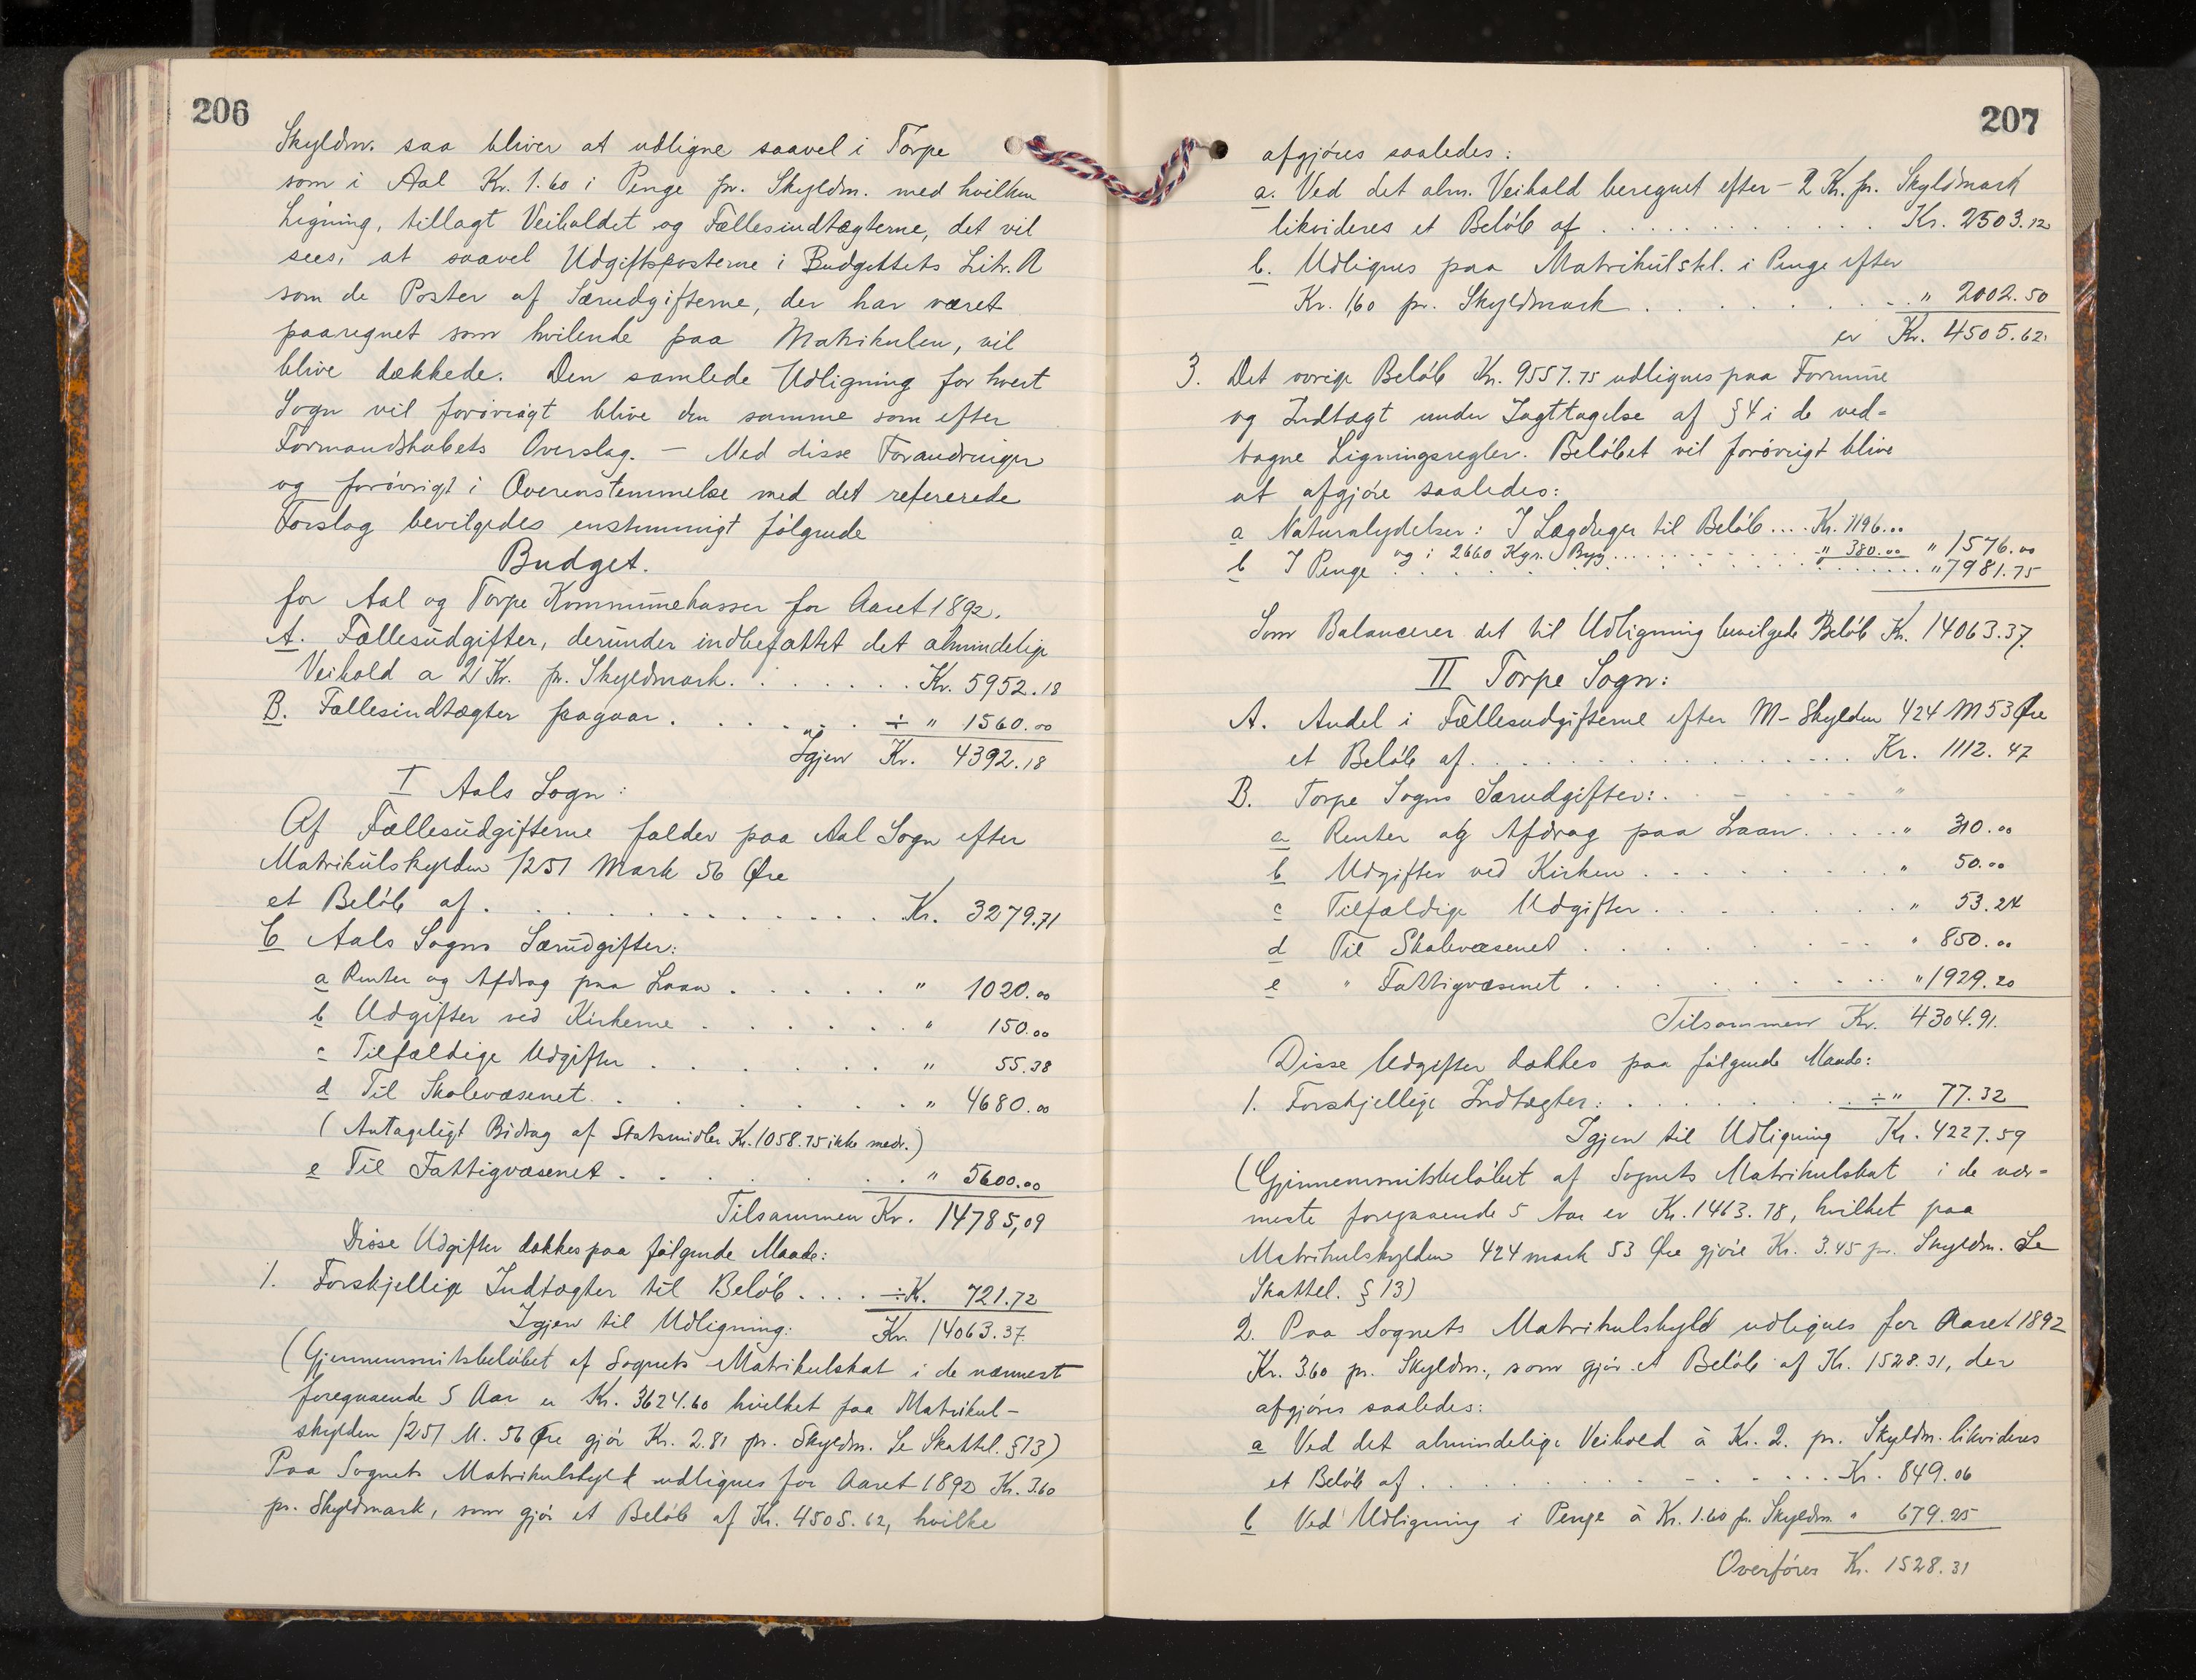 206
Skyldm. saa bliver at udligne saavel i Torpe
som i Aal Kr. 1.60 i Penge pr. Skyldm. med hvilken
Ligning, tillagt Veiholdet og Fællesindtægterne, det vil
sees, at saavel Udgiftsposterne i Budgettets Litr. A
som de Poster af Særudgifterne, der har været
paaregnet som hvilende paa Matrikulen, vil
blive dækkede. Den samlede Udligning for hvert
Sogn vil forøvrigt blive den samme som efter
Formandskabets Overslag. – Med disse Forandringer
og forøvrigt i Overenstemmelse med det refererede
Forslag bevilgedes enstemmigt følgende
Budget.
for Aal og Torpe Kommunekasser for Aaret 1892.
A. Fællesudgifter, derunder indbefattet det almindelige
Veihold a 2 Kr. pr. Skyldmark. . . . . . . . Kr. 5952.18
B. Fællesindtægter fragaar . . . . . . ÷ " 1560.00
Igjen Kr. 4392.18
I Aals Sogn:
Af Fællesudgifterne falder paa Aal Sogn efter
Matrikulskylden 1251 Mark 56 Øre
et Beløb af . . . . . . . . . . . . Kr. 3279.71
C Aals Sogns Særudgifter:
a Renter og Afdrag paa Laan . . . . . " 1020.00
b Udgifter ved Kirkerne . . . . . . " 150.00
c Tilfældige Udgifter . . . . . . " 55.38
d Til Skolevæsenet. . . . . . . " 4680.00
(Antageligt Bidrag af Statsmidler Kr. 1058.75 ikke medr.)
e Til Fattigvæsenet . . . . . . " 5600.00
Tilsammen Kr. 14785,09
Disse Udgifter dækkes paa følgende Maade:
1. Forskjellige Indtægter til Beløb . . . . ÷ K. 721.72
Igjen til Udligning: Kr. 14063.37.
(Gjennemsnitsbeløbet af Sognets Matrikulskat i de nærmest
foregaaende 5 Aar er Kr. 3624.60 hvilket paa Matrikul-
skylden 1251 M. 56 Øre gjør Kr. 2.81 pr. Skyldm. Se Skattel. §13)
Paa Sognets Matrikulskyld udlignes for Aaret 1892 Kr. 3.60
pr. Skyldmark, som gjør et Beløb af Kr. 4505.62, hvilke
207
afgjøres saaledes:
a. Ved det alm. Veihold beregnet efter - 2 Kr. pr. Skyldmark
likvideres et Beløb af . . . . . . . . . . . . Kr. 2503.12
b. Udlignes paa Matrikulskl. i Penge efter
Kr. 1,60 pr. Skyldmark . . . . . . . " 2002.50
er Kr. 4505.62.
3. Det øvrige Beløb Kr. 9557.75 udlignes paa Formue
og Indtægt under Iagttagelse af §4 i de ved-
tagne Ligningsregler. Beløbet vil forøvrigt blive
at afgjøre saaledes:
a Naturalydelser: I Lægdøger til Beløb .... Kr. 1196.00
og i 2660 Kgr. Byg . . . . . . . . " 380.00 " 1576.00
b I Penge . . . . . . . . . . . . " 7981.75
Som Balancerer det til Udligning bevilgede Beløb Kr. 14063.37.
II Torpe Sogn:
A. Andel i Fællesudgifterne efter M-Skylden 424 M 53 Øre
et Beløb af . . . . . . . . . . . . . Kr. 1112.47
B. Torpe Sogns Særudgifter: . . – – – – "
a Renter og Afdrag paa Laan . . . . . " 310.00
b Udgifter ved Kirken . . . . . . . . . " 50.00
c Tilfældige Udgifter . . . . . . . " 53.24
d Til Skolevæsenet . . . . . . . " 850.00
e " Fattigvæsenet . . . . . . . . " 1929.20
Tilsammen Kr. 4304.91.
Disse Udgifter dækkes paa følgende Maade:
1. Forskjellige Indtægter: . . . . . . . ÷ " 77.32
Igjen til Udligning Kr. 4227.59
(Gjennemsnitsbeløbet af Sognets Matrikulskat i de nær-
meste foregaaende 5 Aar er Kr. 1463.78, hvilket paa
Matrikulskylden 424 mark 53 Øre gjøre Kr. 3.45 pr. Skyldm. Se
Skattel. §13)
2. Paa Sognets Matrikulskyld udlignes for Aaret 1892
Kr. 3.60 pr. Skyldm., som gjør et Beløb af Kr. 1528.31, der
afgjøres saaledes:
a Ved det almindelige Veihold à Kr. 2. pr. Skyldm. likvideres
et Beløb af . . . . . . . . . . . . Kr. 849.06
b Ved Udligning i Penge à Kr. 1.60 pr. Skyldm. " 679.25
Overføres Kr. 1528.31